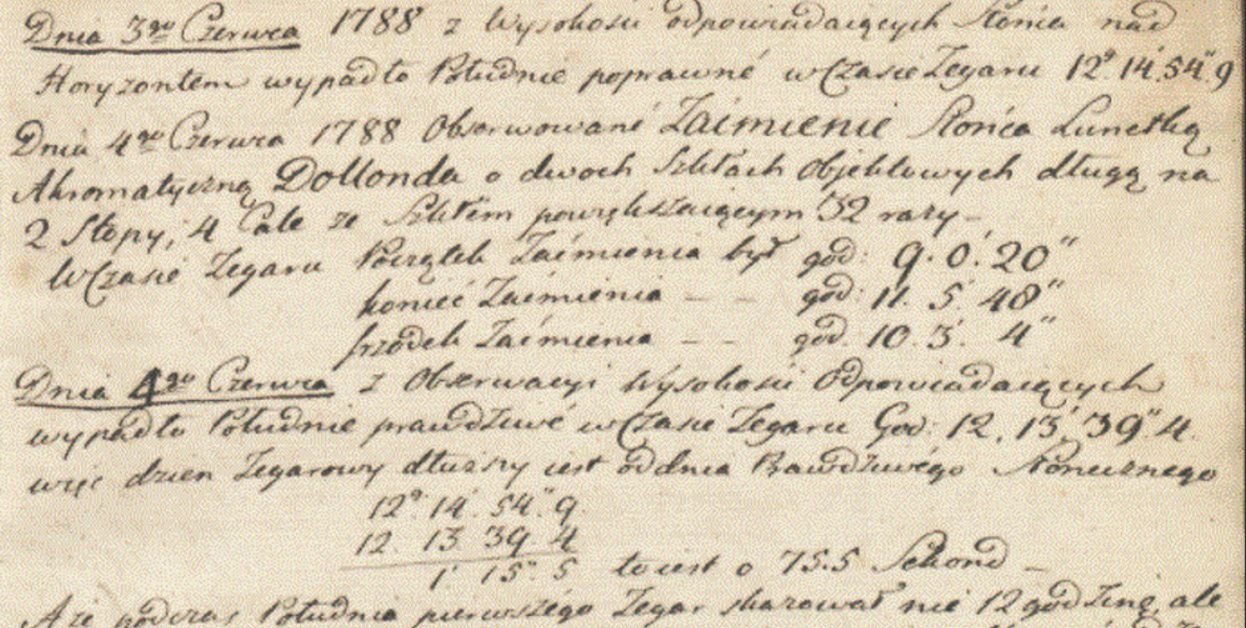 Dnia 3go Czerwca 1788 z Wysokości odpowiadaiących Słońca nad
Horyzontem wypadło Południe poprawne w Czasie Zegaru 12g. 14'. 54''. 9
Dnia 4go Czerwca 1788 Obserwowane Zaćmienie Słońca Lunetką
Akromatyczną Dollonda o dwoch Szkłach Objektowych długą na
2 Stopy, 4 Cale ze Szkłem powiększaiącym 32 razy –
W Czasie Zegaru Początek Zaćmienia był god: 9. 0'. 20''
koniec Zaćmienia – – god: 11. 5'. 48''
srzodek Zaćmienia – – god. 10. 3'. 4''
Dnia 4go Czerwca z Obserwacyi Wysokości Odpowiadaiących
wypadło Południe prawdziwe w Czasie Zegaru God: 12. 13'. 39''. 4.
więc dzien Zegarowy dłuższy iest od dnia Prawdziwego Słonecznego
12g. 14'. 54''. 9.
12. 13. 39. 4
1' 15''. 5 to iest o 75.5 Sekond –
A że podczas Południa pierwszego Zegar skazował nie 12 godzinę, ale